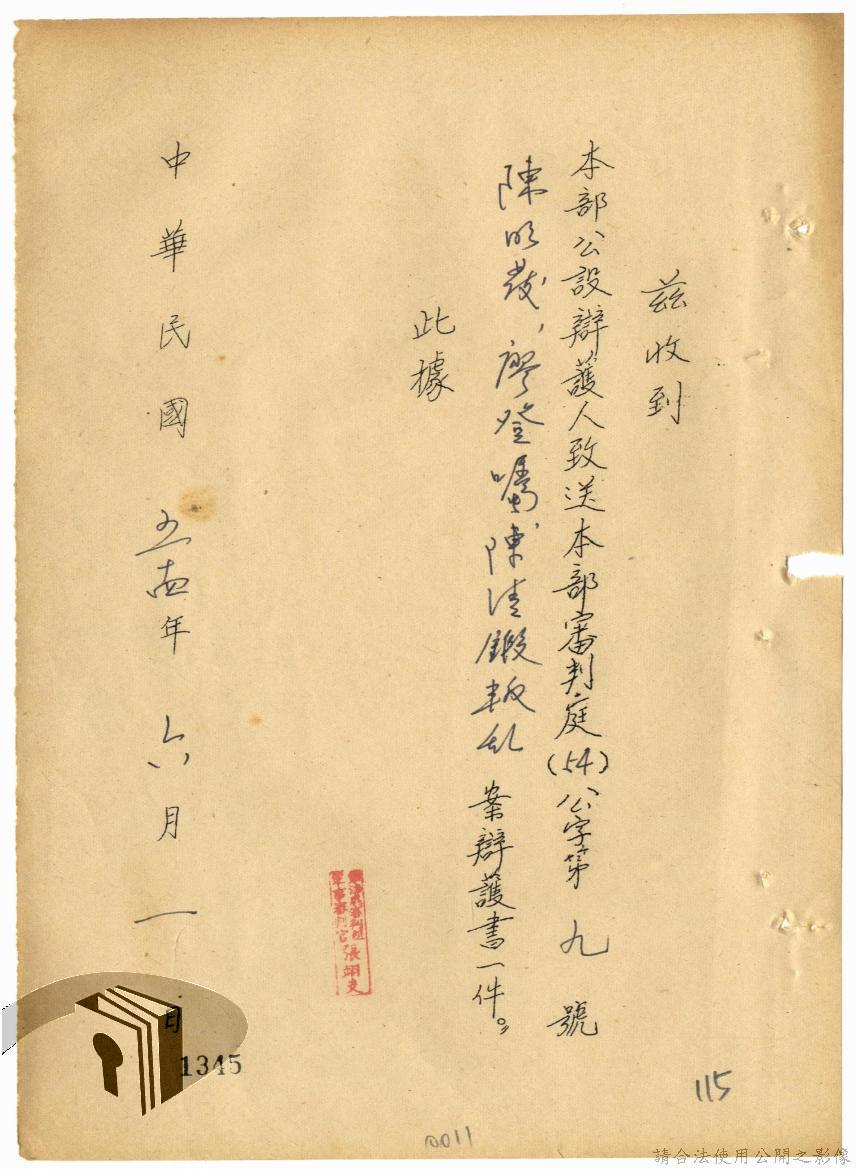 茲收到
本部公設辯護人致送本部審判庭(54)公字第 九 號
陳明發、廖登囑、陳清鍛叛乱 案辯護書一件。
此據
軍事審判官 張翊支
中華民國 五十四年 六月 一 日
1345
115
0011
請合法使用公開之影像